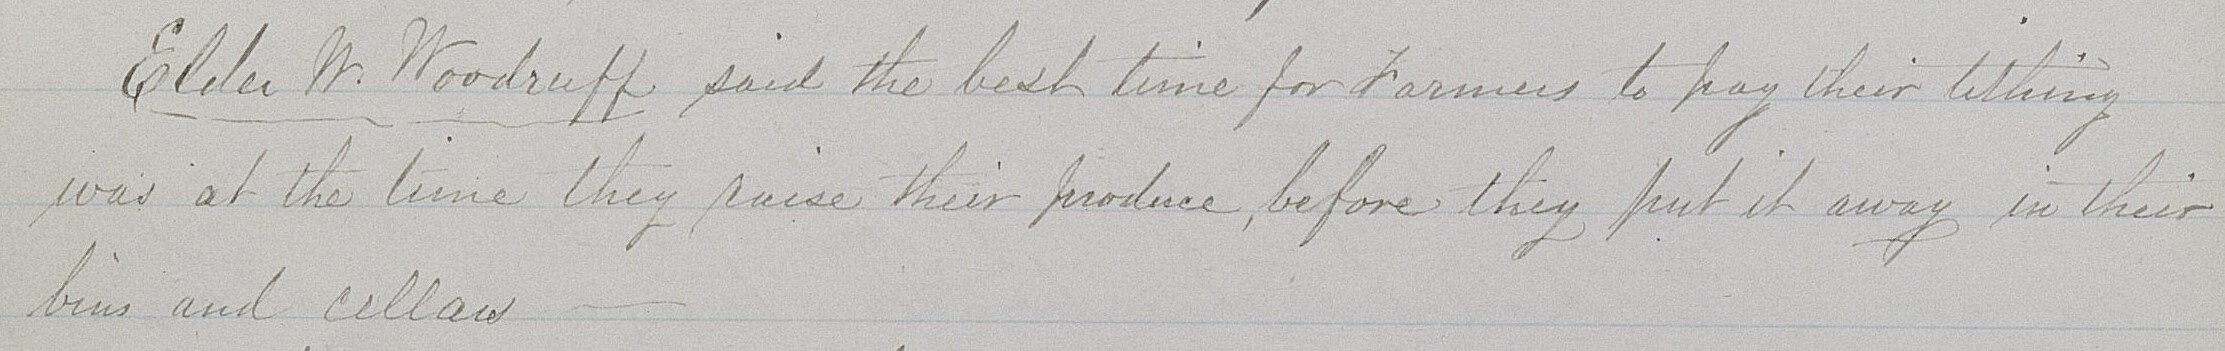 Elder W. Woodruff said the best time for Farmers to pay their tithing
was at the time they raise their produce, before they put it away in their
bins and cellars —